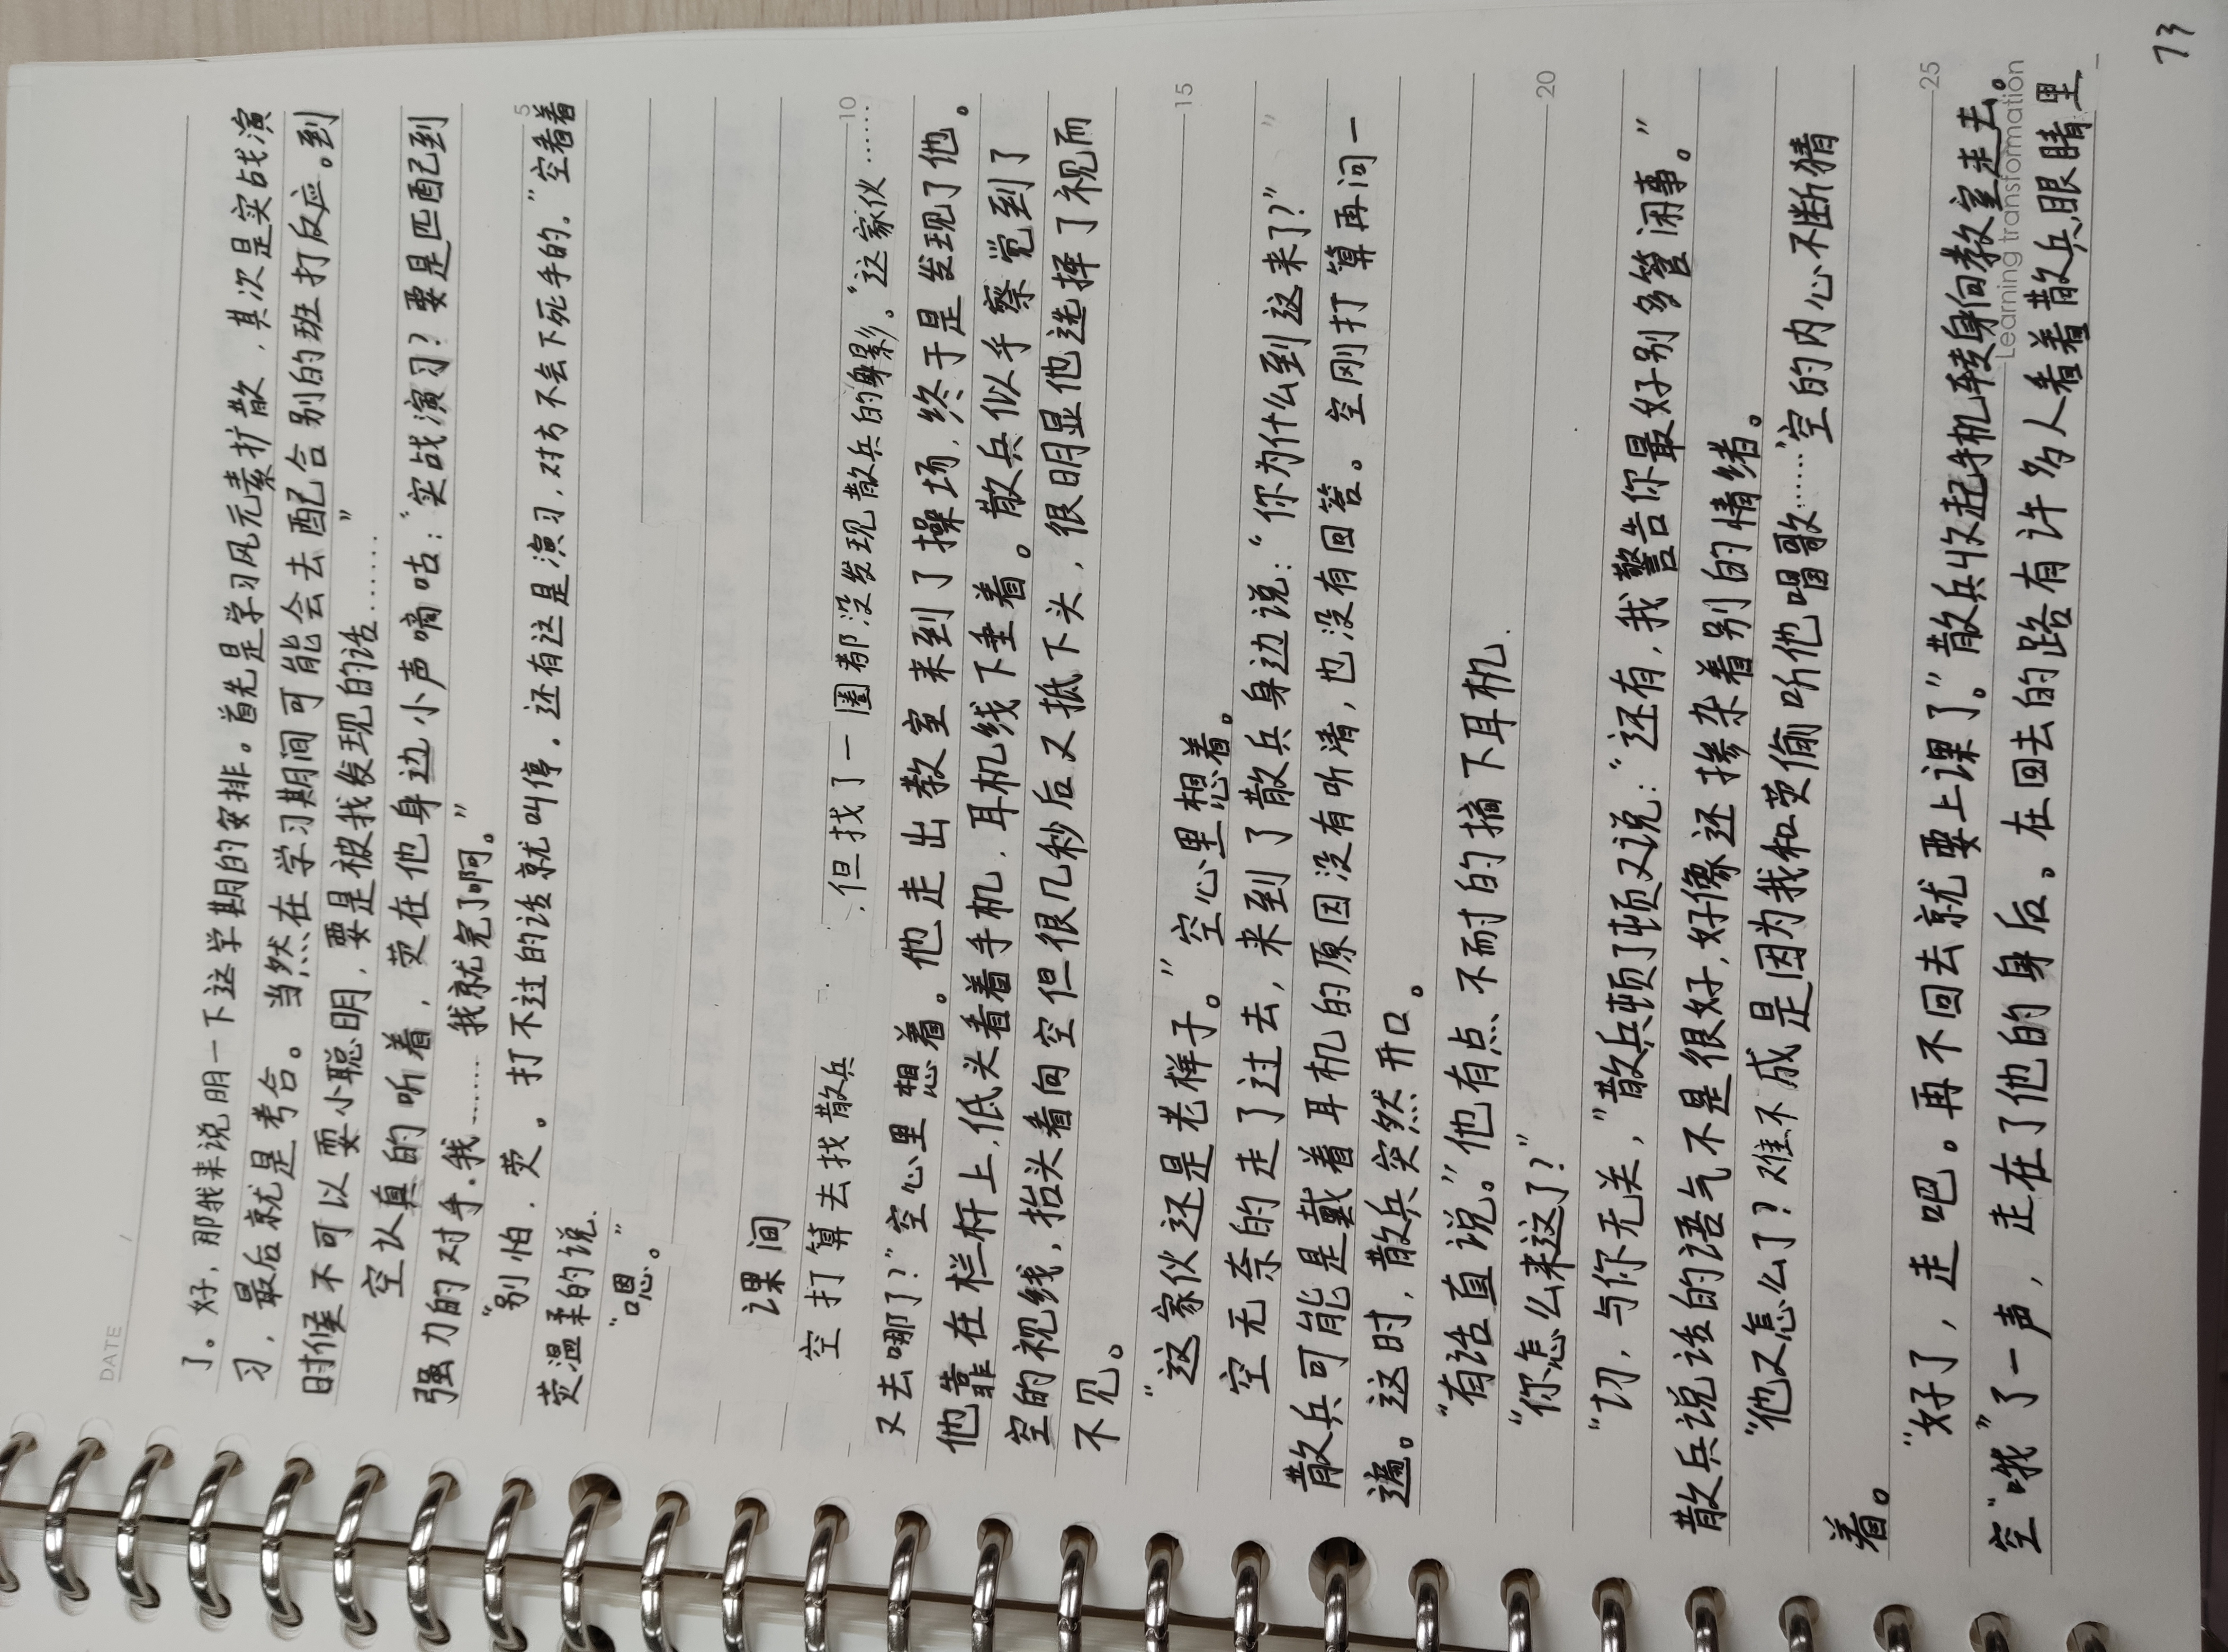 DATE
了。好，那我来说明一下这学期的安排。首先是学习风元素扩散，其次是实战演
习，最后就是考合。当然在学习期间可能会去配合别的班打反应。到
时候不可以耍小聪明，要是被我发现的话……”
空认真的听着，荧在他身边小声嘀咕：“实战演习？要是匹配到
强力的对手.我……我就完了啊。”
“别怕．荧。打不过的话就叫停．还有这是演习，对方不会下死手的．”空看着
荧温柔的说．
“嗯。”
课间
空打算去找散兵，但找了一圈都没发现散兵的身影。“这家伙……
又去哪了？”空心里想着。他走出教室来到了操场，终于是发现了他。
他靠在栏杆上，低头看着手机，耳机线下垂着。散兵似乎察觉到了
空的视线，抬头看向空但很几秒后又抵下头，很明显他选择了视而
不见。
“这家伙还是老样子。”空心里想着。
空无奈的走了过去，来到了散兵身边说：“你为什么到这来了？”
散兵可能是戴着耳机的原因没有听清，也没有回答。空刚打算再问一
遍。这时，散兵突然开口。
“有话直说。”他有点不耐的摘下耳机．
“你怎么来这了？”
“切，与你无关，”散兵顿了顿又说：“还有，我警告你最好别多管闲事。”
散兵说话的语气不是很好，好像还掺杂着别的情绪。
“他又怎么了？难不成是因为我和荧偷听他唱歌……”空的内心不断猜
着。
“好了，走吧。再不回去就要上课了。”散兵收起手机转身向教室走去。
空“哦”了一声，走在了他的身后。在回去的路有许多人看着散兵眼睛里
5
10
15
20
25
Learning transformation
73